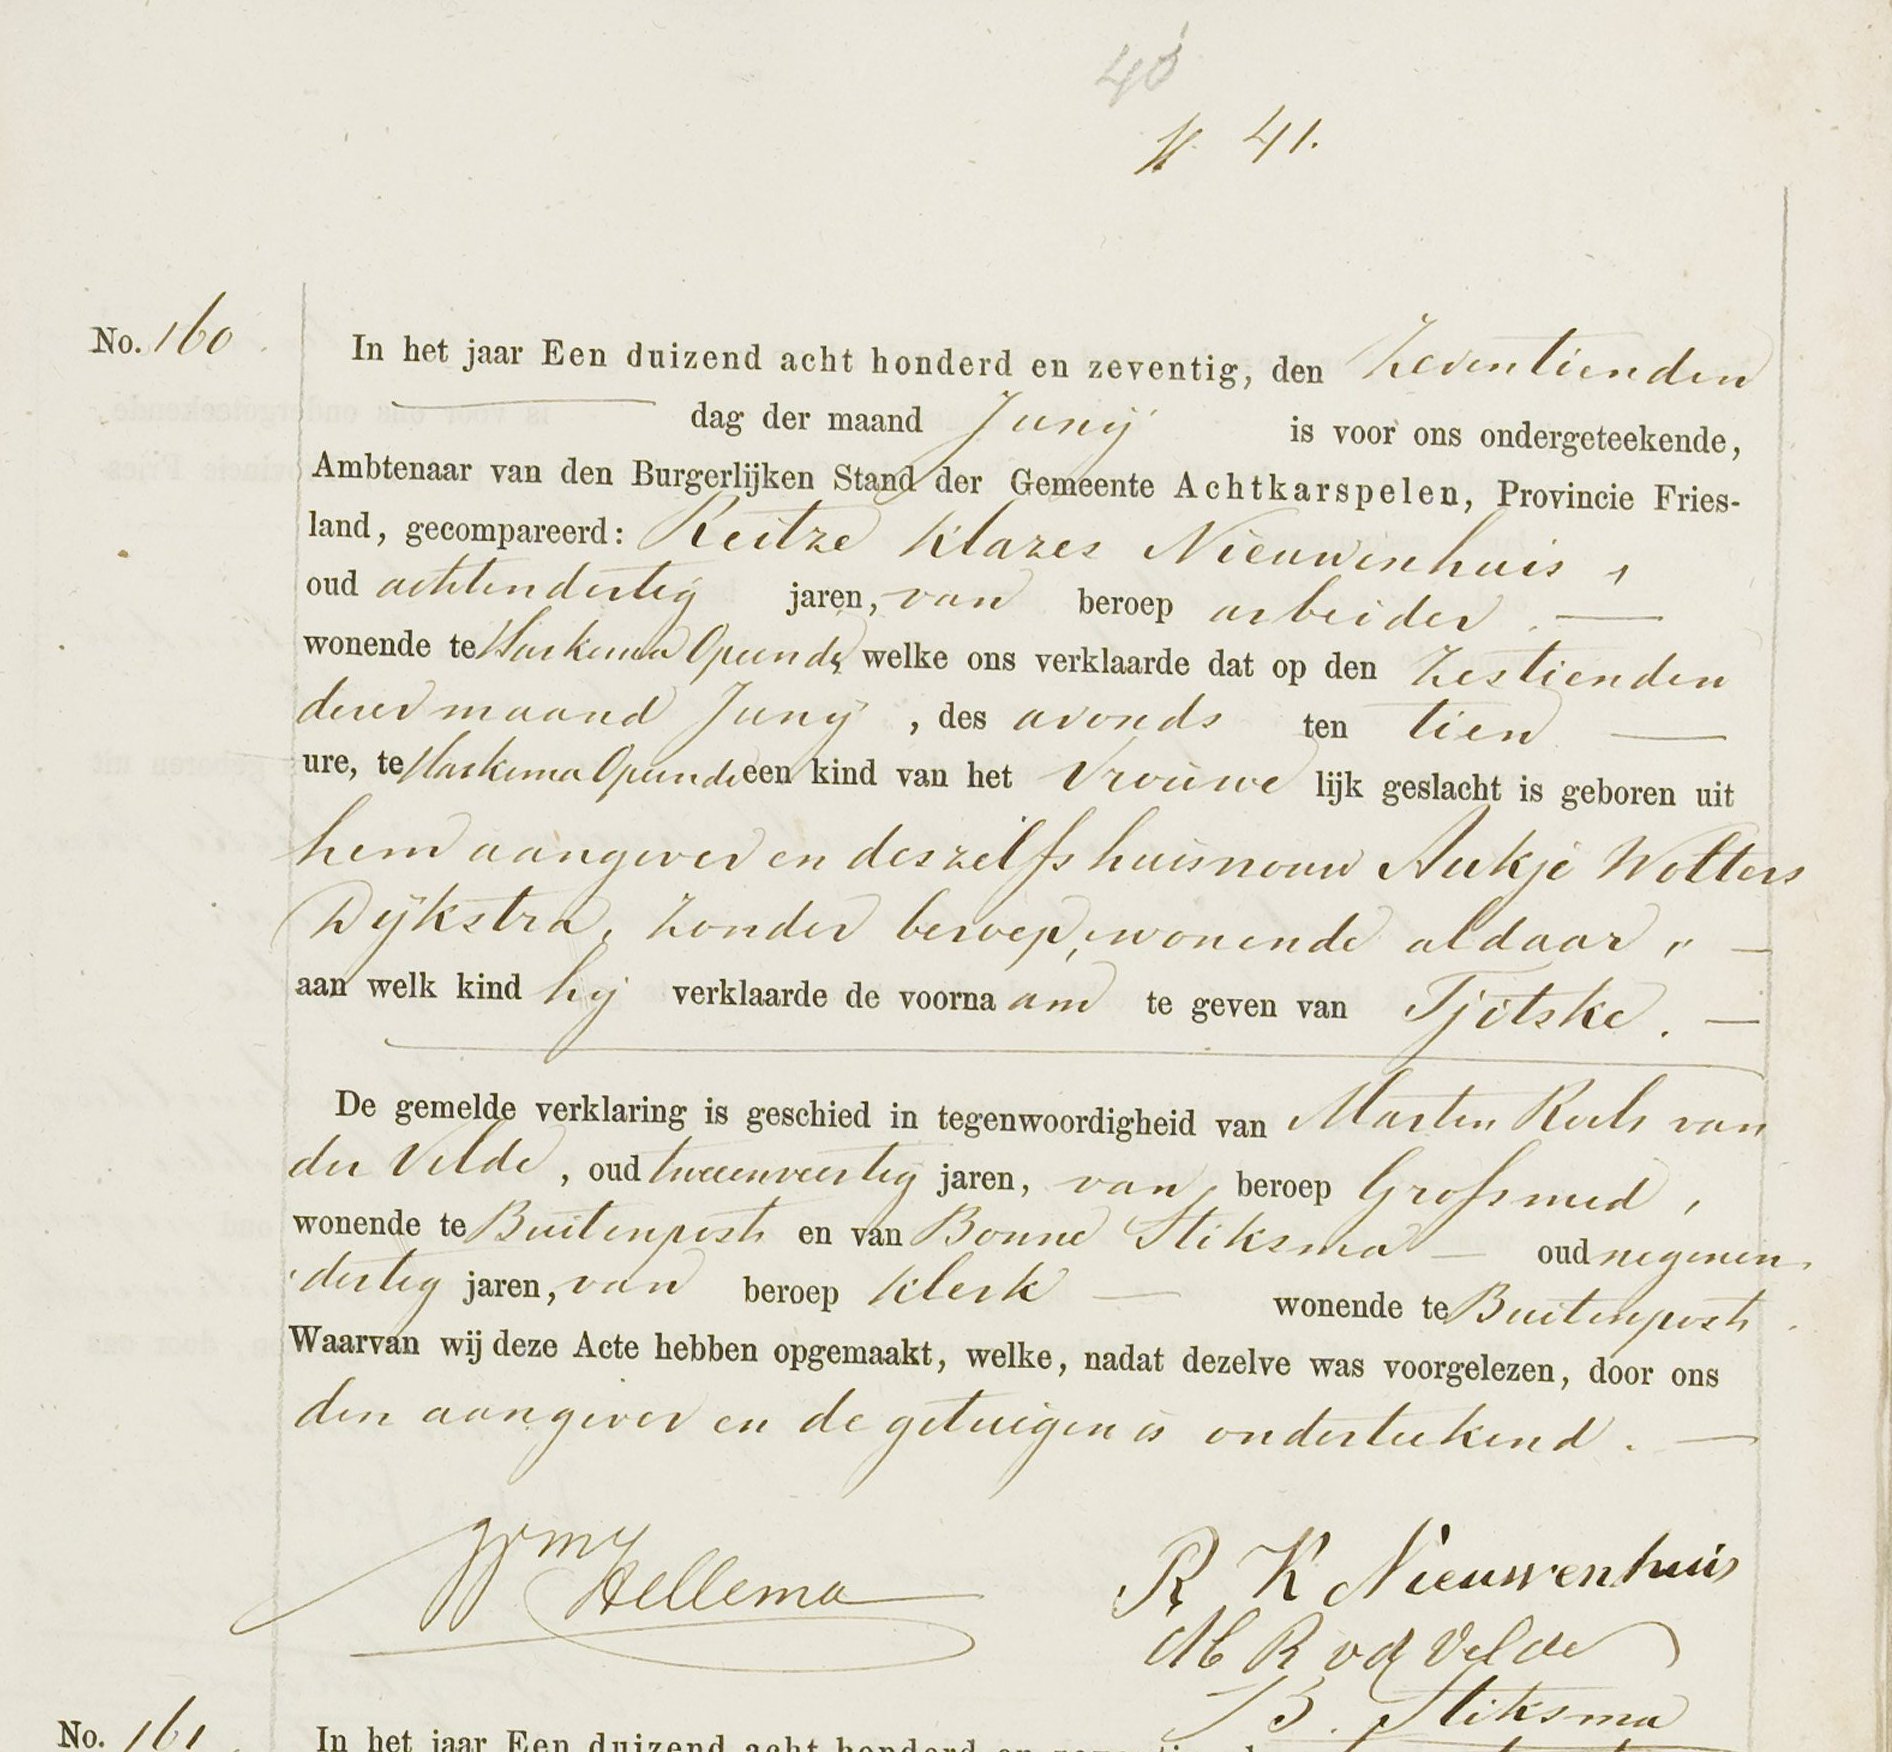 40
N. 41.
No. 160. In het jaar Een duizend acht honderd en zeventig, den Zeventienden
dag der maand Junij is voor ons ondergeteekende,
Ambtenaar van den Burgerlijken Stand der Gemeente Achtkarspelen, Provincie Fries-
land, gecompareerd: Reitze Klazes Nieuwenhuis,
oud achtendertig jaren, van beroep arbeider. —
wonende te Harkema Opeinde, welke ons verklaarde dat op den Zestienden
dezer maand Junij, des avonds ten tien —
ure, te Harkema Opeinde een kind van het Vrouwe lijk geslacht is geboren uit
hem aangever en deszelfs huisvrouw Aukje Wolters
Dijkstra, zonder beroep, wonende aldaar, —
aan welk kind hij verklaarde de voorna am te geven van Tjitske. —
De gemelde verklaring is geschied in tegenwoordigheid van Marten Roels van
der Velde, oud tweeenveertig jaren, van beroep Grofsmid,
wonende te Buitenpost, en van Bonne Stiksma — oud negenen
dertig jaren, van beroep Klerk — wonende te Buitenpost.
Waarvan wij deze Acte hebben opgemaakt, welke, nadat dezelve was voorgelezen, door ons
den aangever en de getuigen is onderteekend. —
Hellema
R K Nieuwenhuis
M R v d Velde
B. Stiksma
No. 161. In het jaar Een duizend acht honderd en